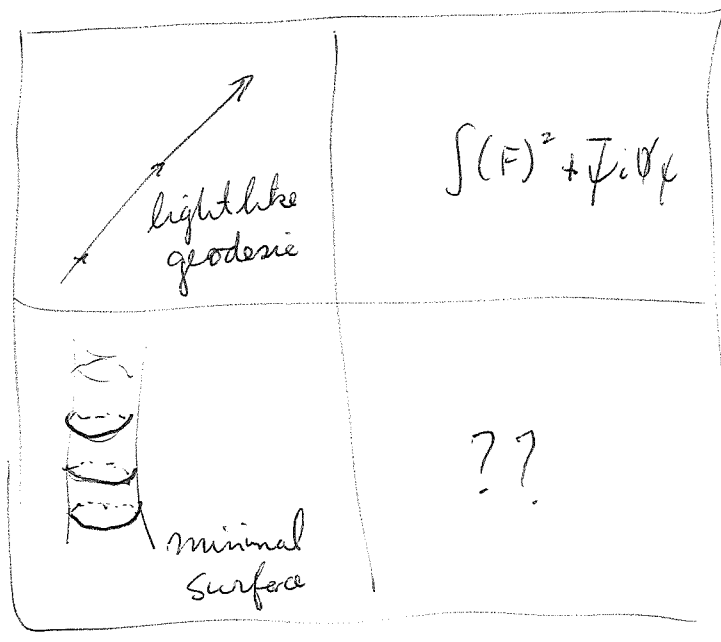 lightlike
geodesic
∫(F)² + ψ̄ i D̸ ψ
minimal
surface
??